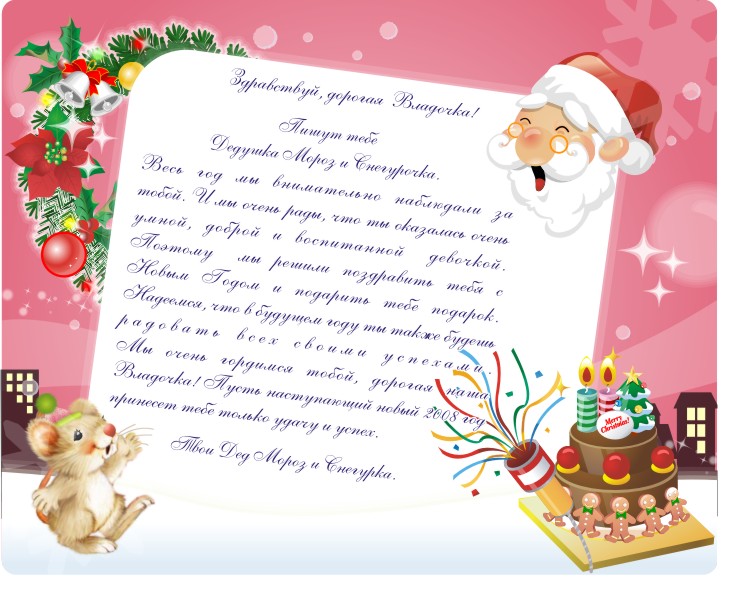 Здравствуй, дорогая Владочка!
Пишут тебе
Дедушка Мороз и Снегурочка.
Весь год мы внимательно наблюдали за
тобой. И мы очень рады, что ты оказалась очень
умной, доброй и воспитанной девочкой.
Поэтому мы решили поздравить тебя с
Новым Годом и подарить тебе подарок.
Надеемся, что в будущем году ты также будешь
радовать всех своими успехами.
Мы очень гордимся тобой, дорогая наша
Владочка! Пусть наступающий новый 2008 год
принесет тебе только удачу и успех.
Твои Дед Мороз и Снегурка.
Merry
Christmas!